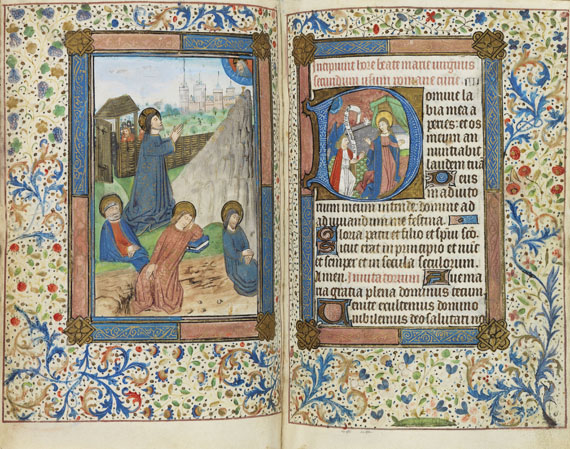 Incipiunt hore beate marie virginis
secundum usum romane curie
Domine la
bia mea a
peries: et os
meum an
nuntiabit
laudem tuā
Deus
in adiuto
rium meum intende: domine ad
adiuvandum me festina
Gloria patri et filio et spiri
Sicut erat in principio et
et semper et in secula seculorum
Amen
ria gratia plena dominus tecum
exultemus domino
iubilemus deo salutari no